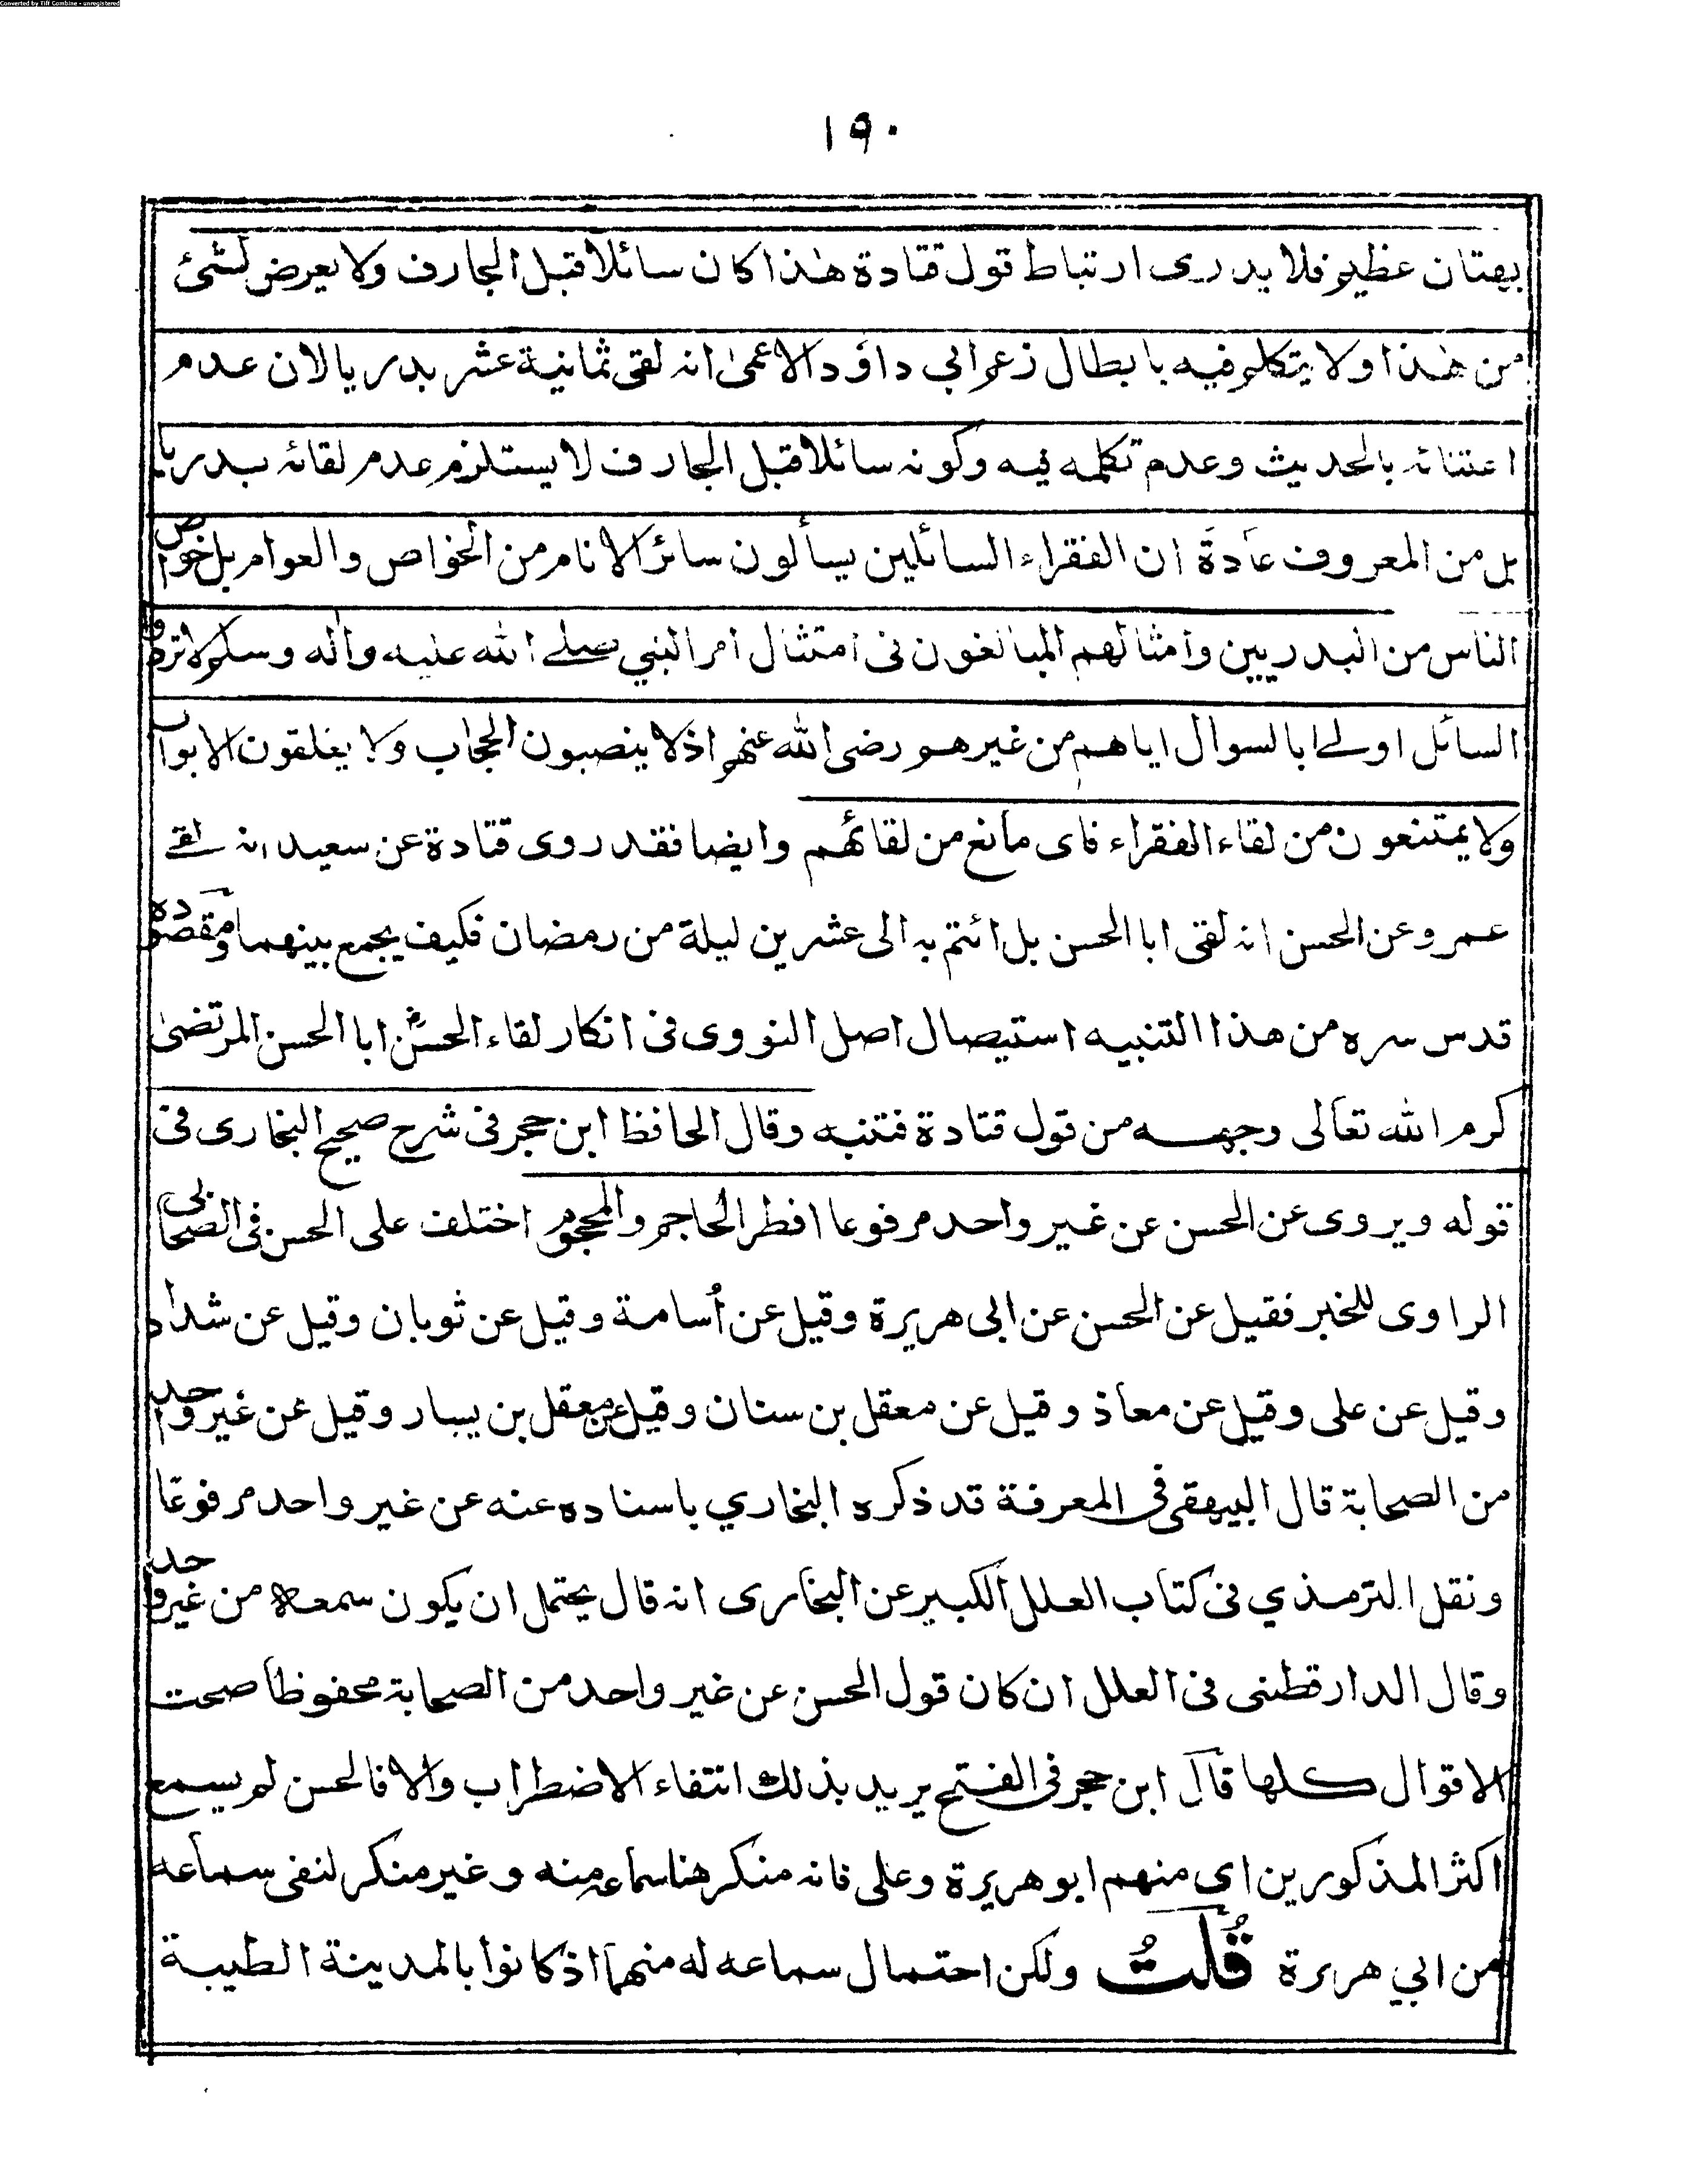 Converted by Tiff Combine - unregistered
١٩٠
بهتان عظيم فلا يدرى ارتباط قول قتادة هذا كان سائلا قبل الجارف ولا يعرض لشئ
من هذا ولا يتكلم فيه بابطال زعم ابي داؤد الاعمىٰ انه لقى ثمانية عشر بدريا لان عدم
اعتنائه بالحديث وعدم تكلمه فيه وكونه سائلا قبل الجارف لا يستلزم عدم لقائه بدريا
بل من المعروف عادة ان الفقراء السائلين يسألون سائر الانام من الخواص والعوام بل خواص
الناس من البدريين وأمثالهم المبالغون فى امتثال امر النبي صلے الله عليه وآله وسلم لا تردوا
السائل اولے ابالسوال اياهم من غيرهم رضى الله عنهم اذ لا ينصبون الحجاب ولا يغلقون الابواب
ولا يمتنعون من لقاء الفقراء فاى مانع من لقائهم وايضا فقد روى قتادة عن سعيد انه لقے
عمر وعن الحسن انه لقى ابا الحسن بل ائتم به الى عشرين ليلة من رمضان فكيف يجمع بينهما ومقصوده
قدس سره من هذا التنبيه استيصال اصل النووى فى انكار لقاء الحسن ابا الحسن المرتضىٰ
كرم الله تعالى وجهه من قول قتادة فتنبه وقال الحافظ ابن حجر فى شرح صحيح البخارى فى
قوله ويروى عن الحسن عن غير واحد مرفوعا افطر الحاجم والمحجوم اختلف على الحسن فى الصحابى
الراوى للخبر فقيل عن الحسن عن ابى هريرة وقيل عن أسامة وقيل عن ثوبان وقيل عن شداد
وقيل عن على وقيل عن معاذ وقيل عن معقل بن سنان وقيل عن معقل بن يسار وقيل عن غير واحد
من الصحابة قال البيهقى فى المعرفة قد ذكره البخاري باسناده عنه عن غير واحد مرفوعًا
ونقل الترمذي فى كتاب العلل الكبير عن البخارى انه قال يحتمل ان يكون سمعه من غير واحد
وقال الدارقطنى فى العلل ان كان قول الحسن عن غير واحد من الصحابة محفوظا صحت
الاقوال كلها قال ابن حجر فى الفتح يريد بذلك انتفاء الاضطراب والا فالحسن لم يسمع
اكثر المذكورين اى منهم ابو هريرة وعلى فانه منكر هنا سماعه منه وغير منكر لنفى سماعه
من ابي هريرة قُلتُ ولكن احتمال سماعه له منهما اذ كانوا بالمدينة الطيبة